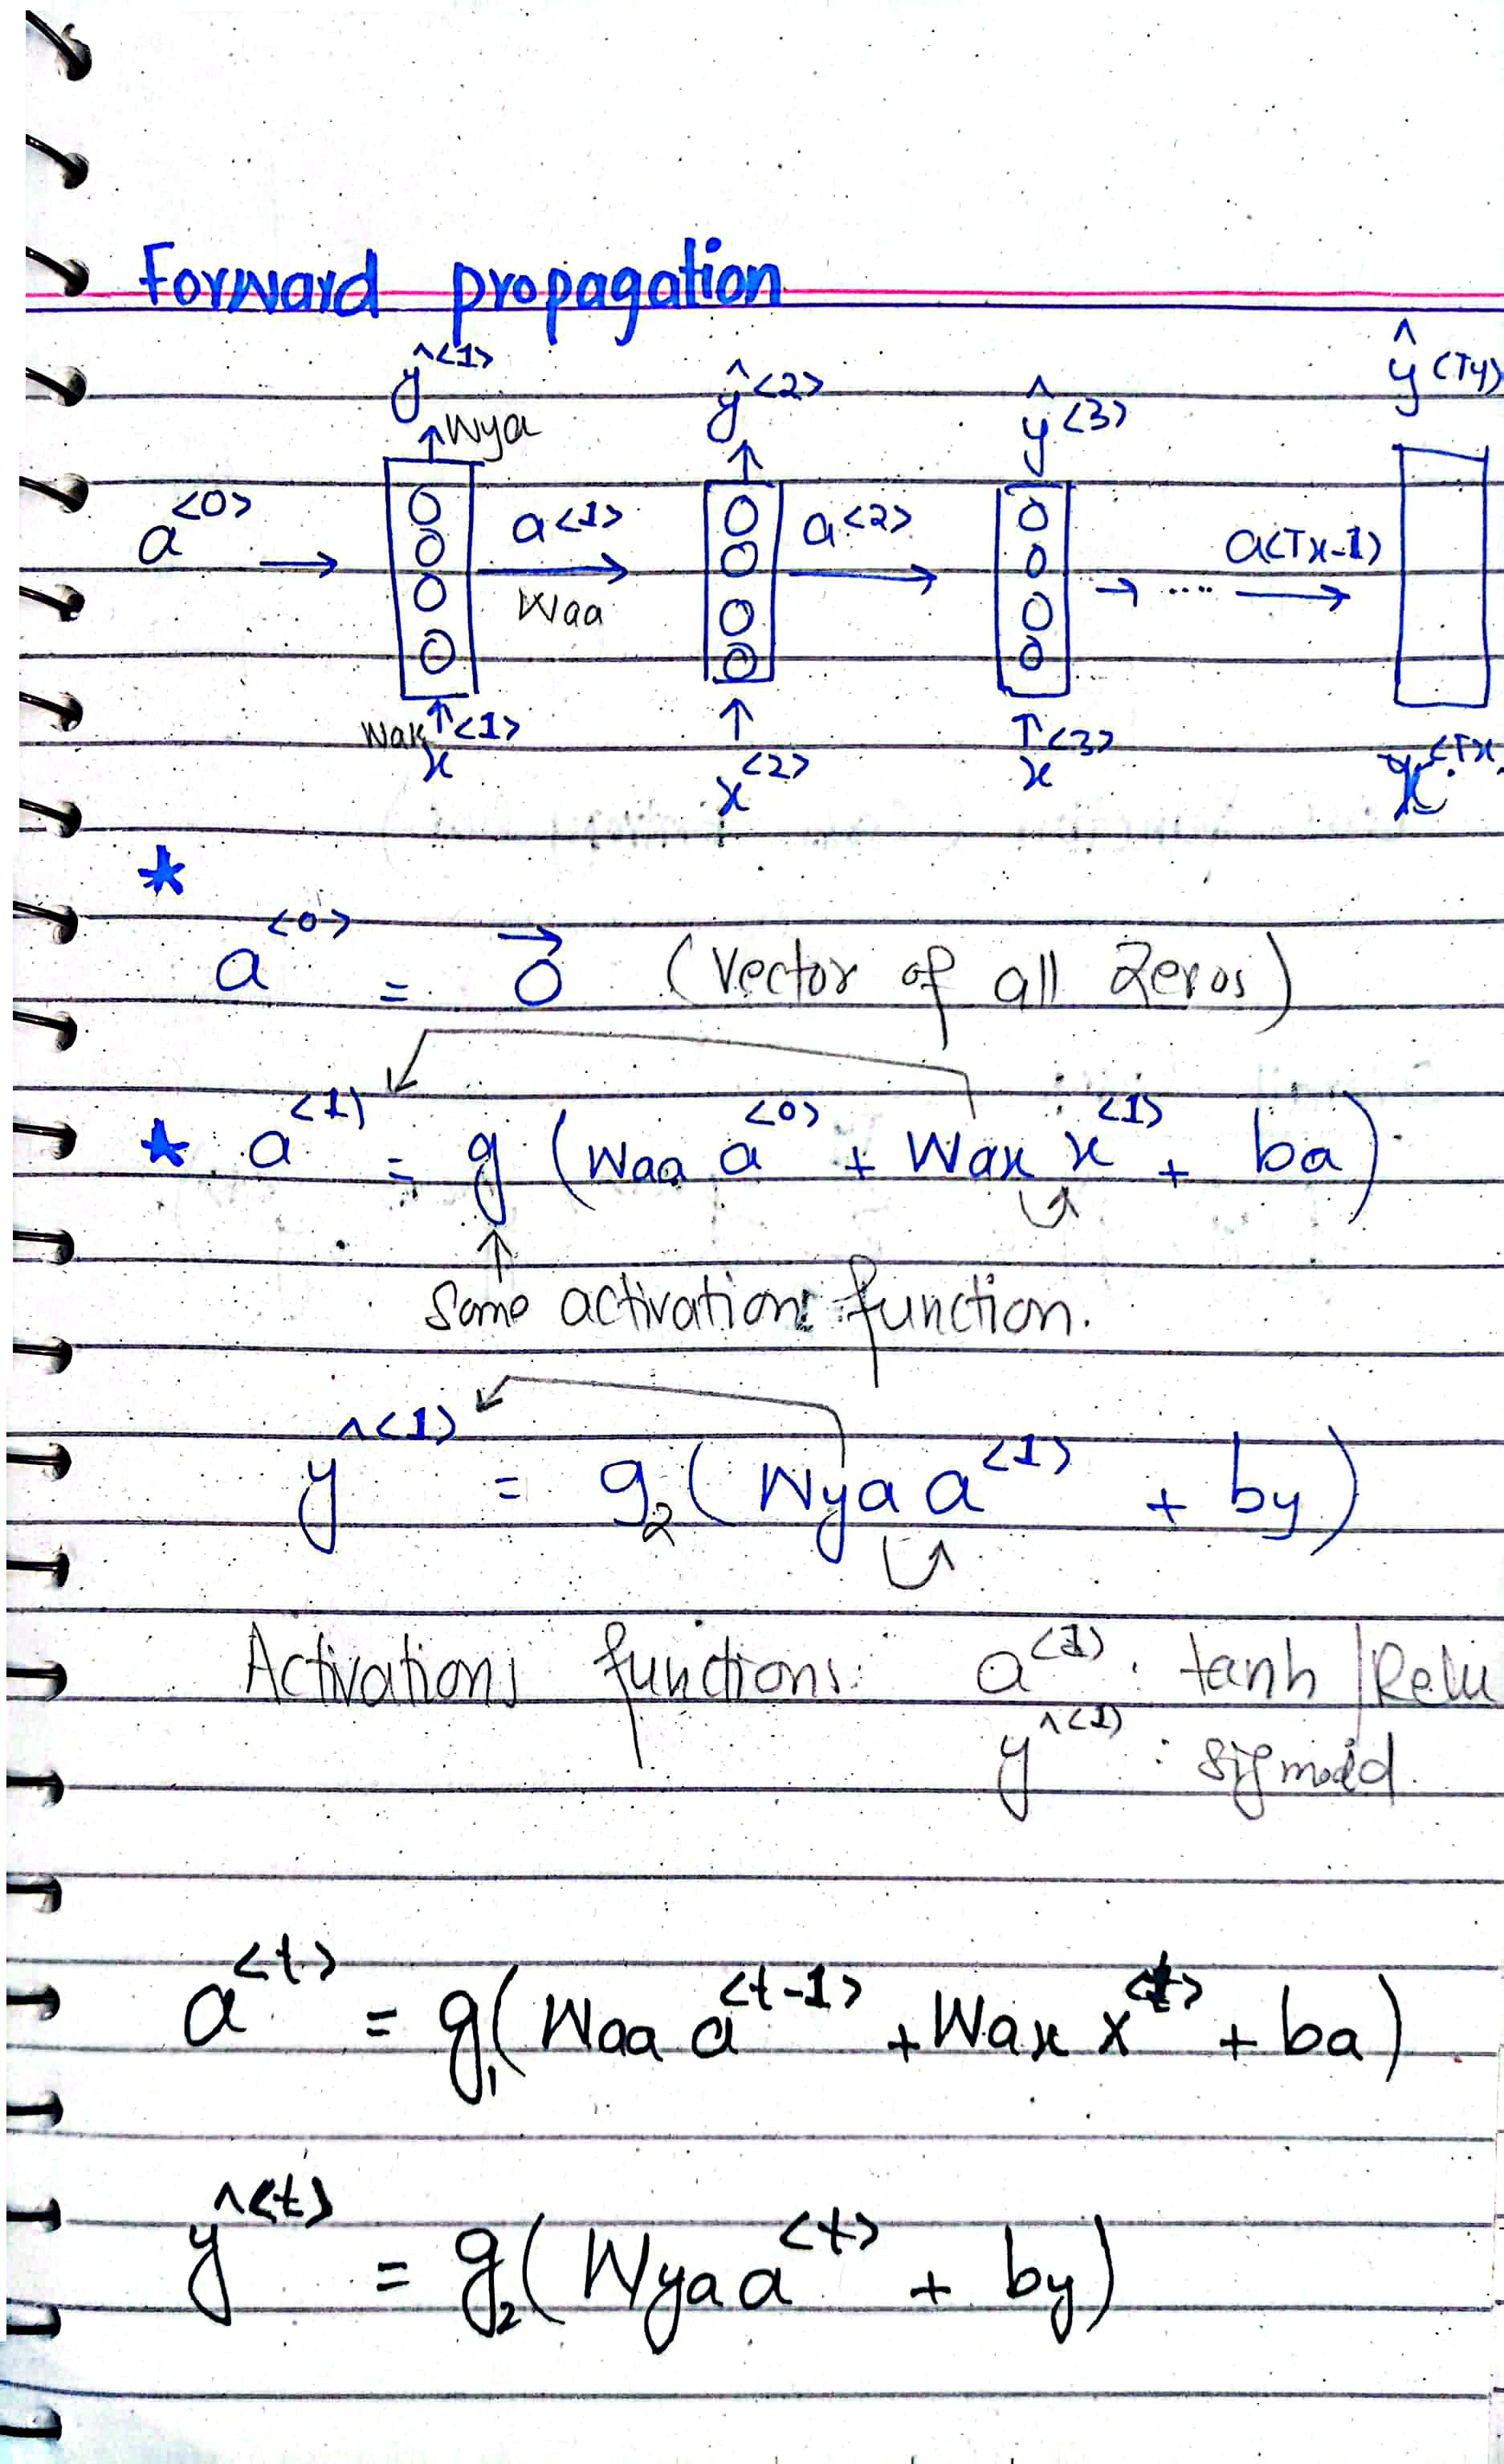 Forward propagation
ŷ<1> ŷ<2> ŷ<3> ŷ(Ty)
Wya
a<0> → a<1> → a<2> → → .... a(Tx-1) →
Waa
Wax x<1> x<2> x<3> x<Tx
* a<0> = 0⃗ (Vector of all Zeros)
* a<1) = g (Waa a<0> + Wax x<1> + ba)
Some activation function.
ŷ<1> = g2 (Wya a<1> + by)
Activations functions: a<1) : tanh | Relu
ŷ<1) : sigmoid.
a<t> = g1 (Waa a<t-1> + Wax x<t> + ba)
ŷ<t> = g2 (Wya a<t> + by)